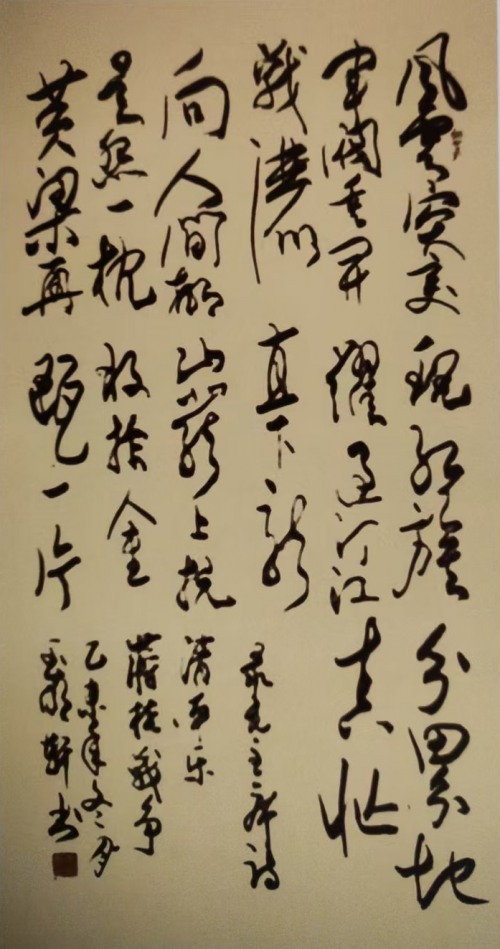 風雲突变
軍閥重开
戰洒
向人间都
是怨一枕
黄粱再
現红旗
躍过汀江
直下龙
岩上杭
收拾金
瓯一片
分田分地
真忙
录毛主席诗
清平乐
蒋桂战争
乙未年冬月
轩书